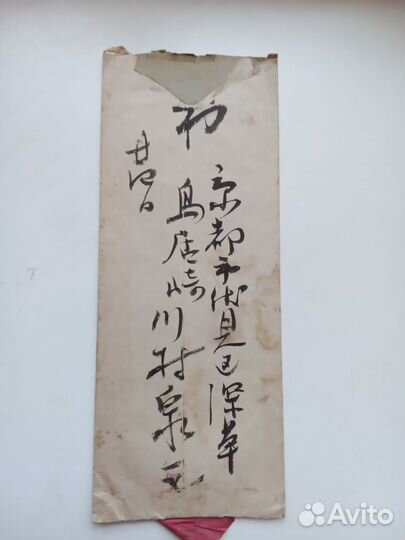 京都市伏見区深草
鳥居崎川村泉
廿四日
Avito